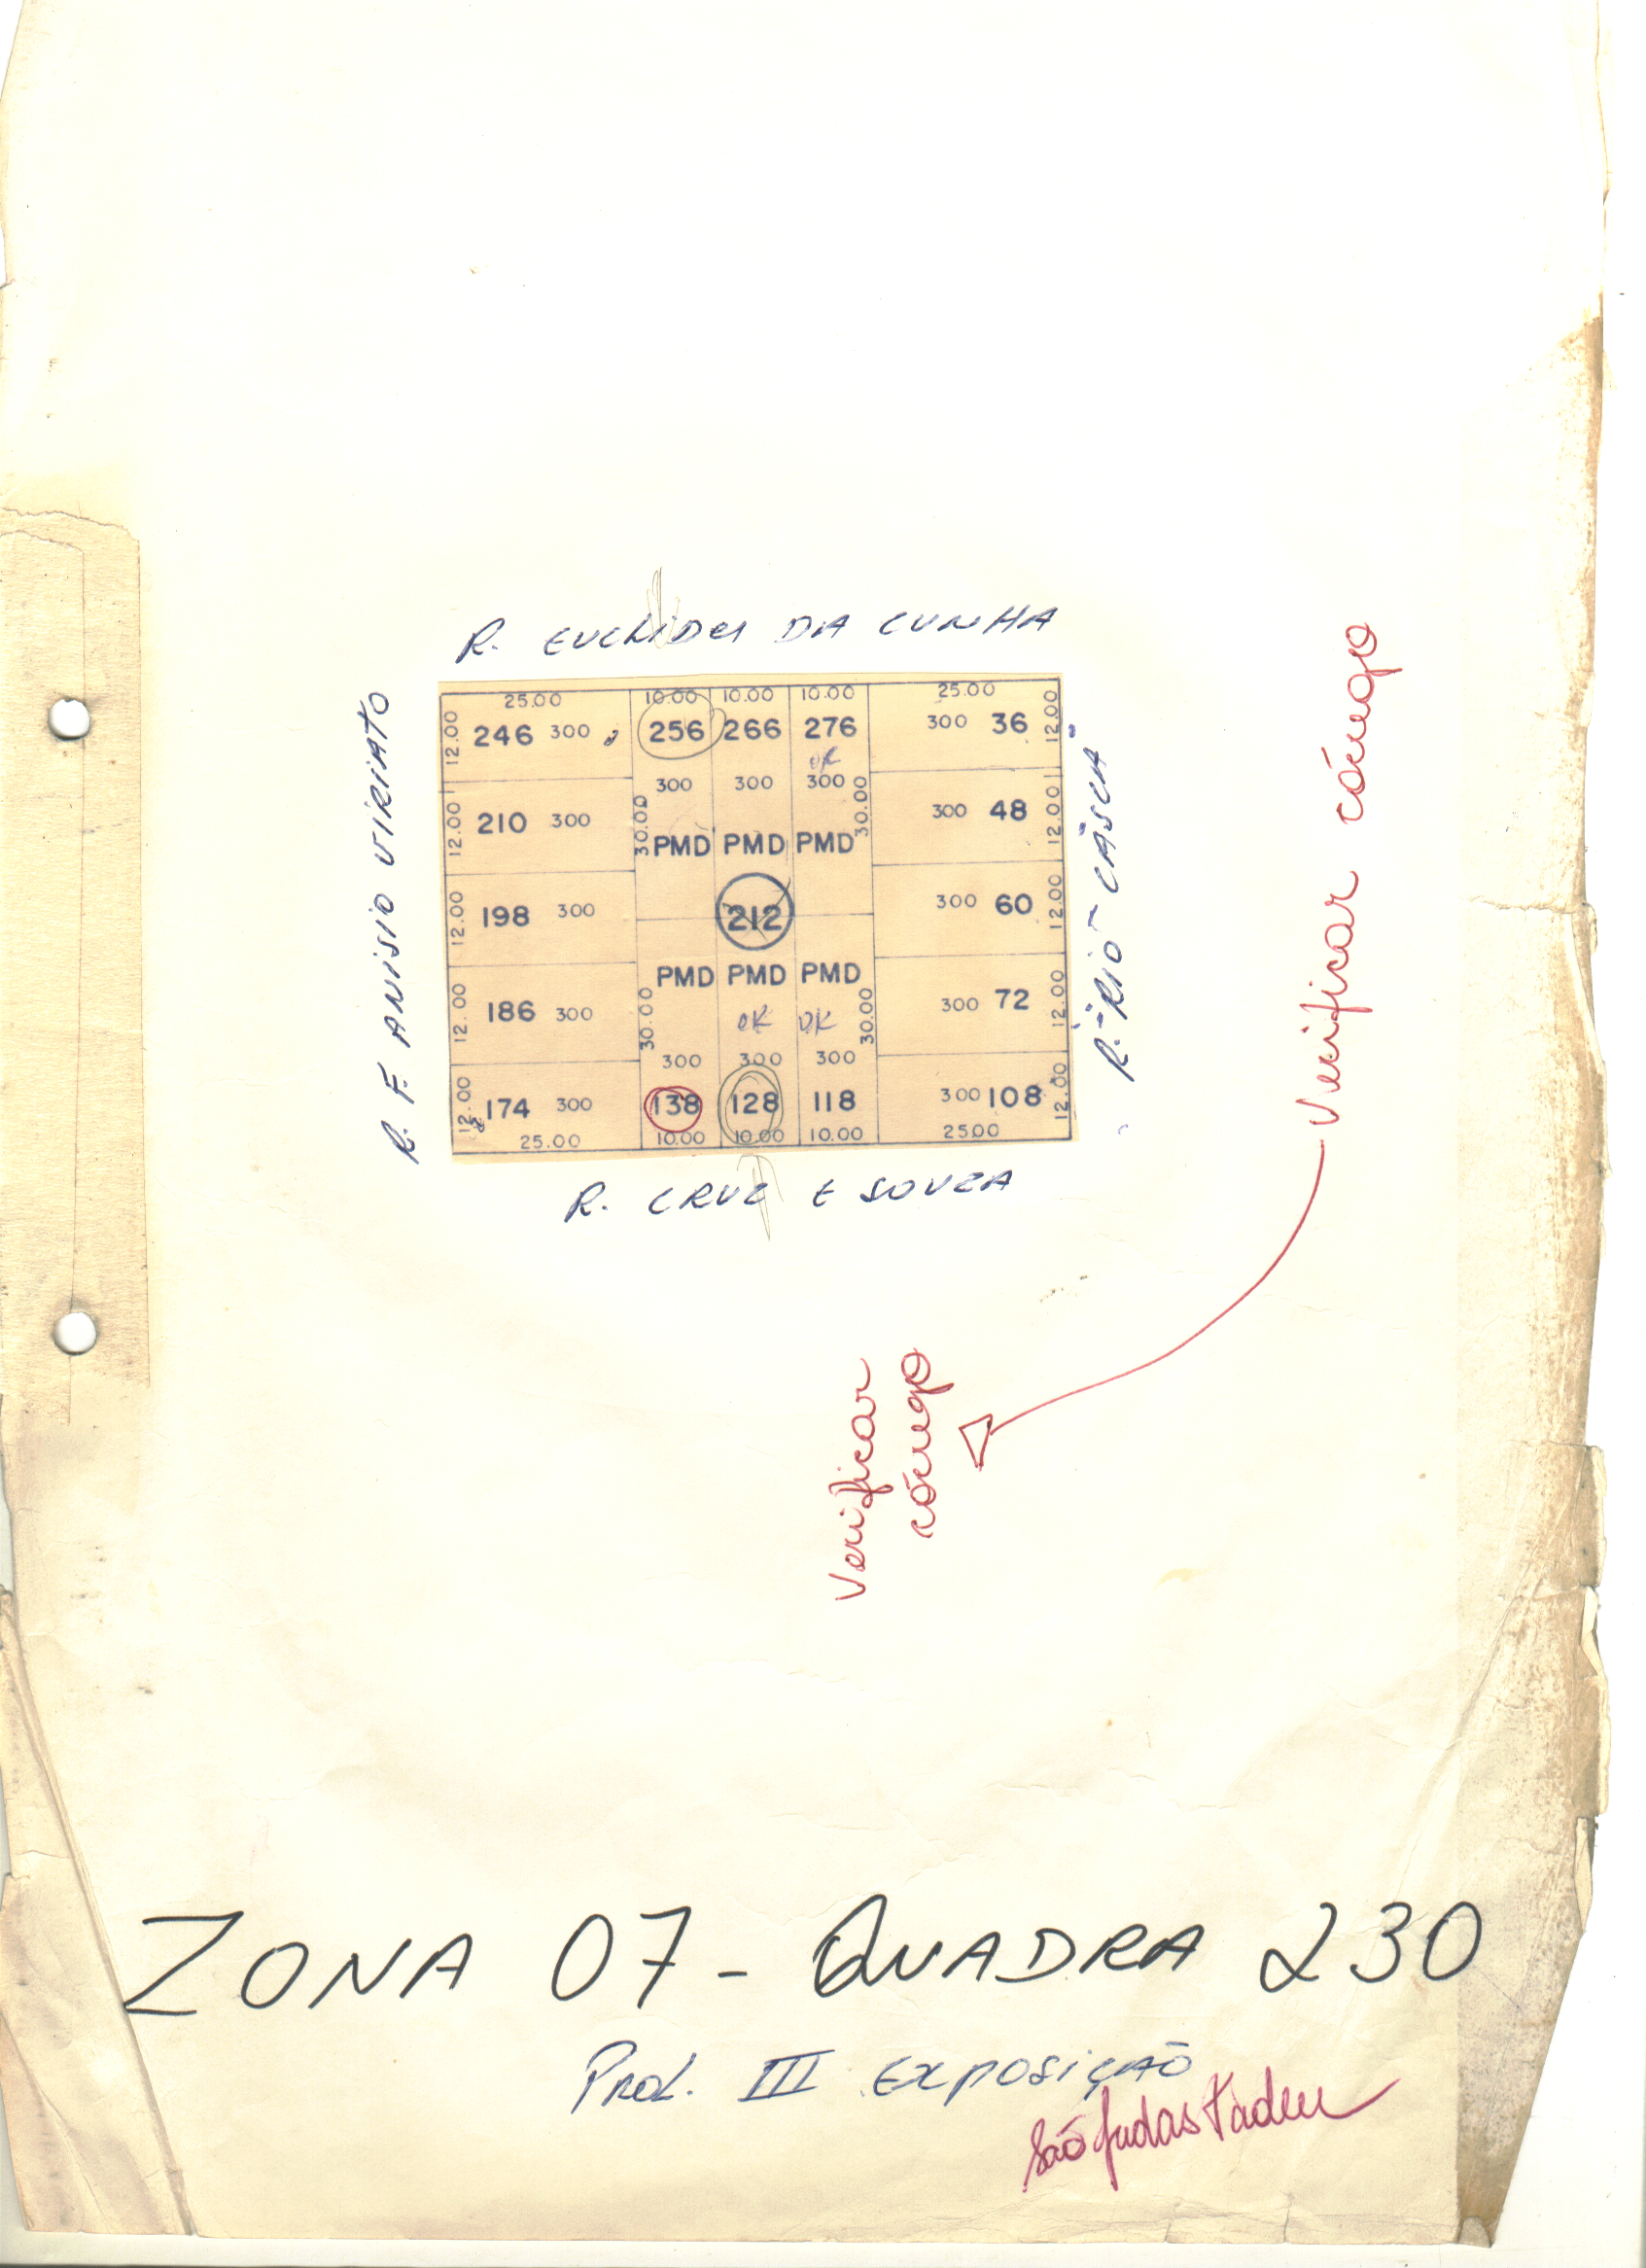 R. EUCLIDES DA CUNHA
25.00 10.00 10.00 10.00 25.00
12.00 246 300 256 266 276 300 36 12.00
OK
300 300 300
12.00 210 300 30.00 30.00 300 48 12.00
PMD PMD PMD
12.00 198 300 212 300 60 12.00
PMD PMD PMD
12.00 186 300 30.00 OK OK 30.00 300 72 12.00
300 300 300
12.00 174 300 138 128 118 300 108 12.00
25.00 10.00 10.00 10.00 25.00
R. F. ANISIO VIRIATO
R. RIO CÁSCIA
R. CRUZ E SOUZA
Verificar córrego
Verificar
córrego
ZONA 07 - QUADRA 230
Prol. III EXPOSIÇÃO
São Judas Tadeu